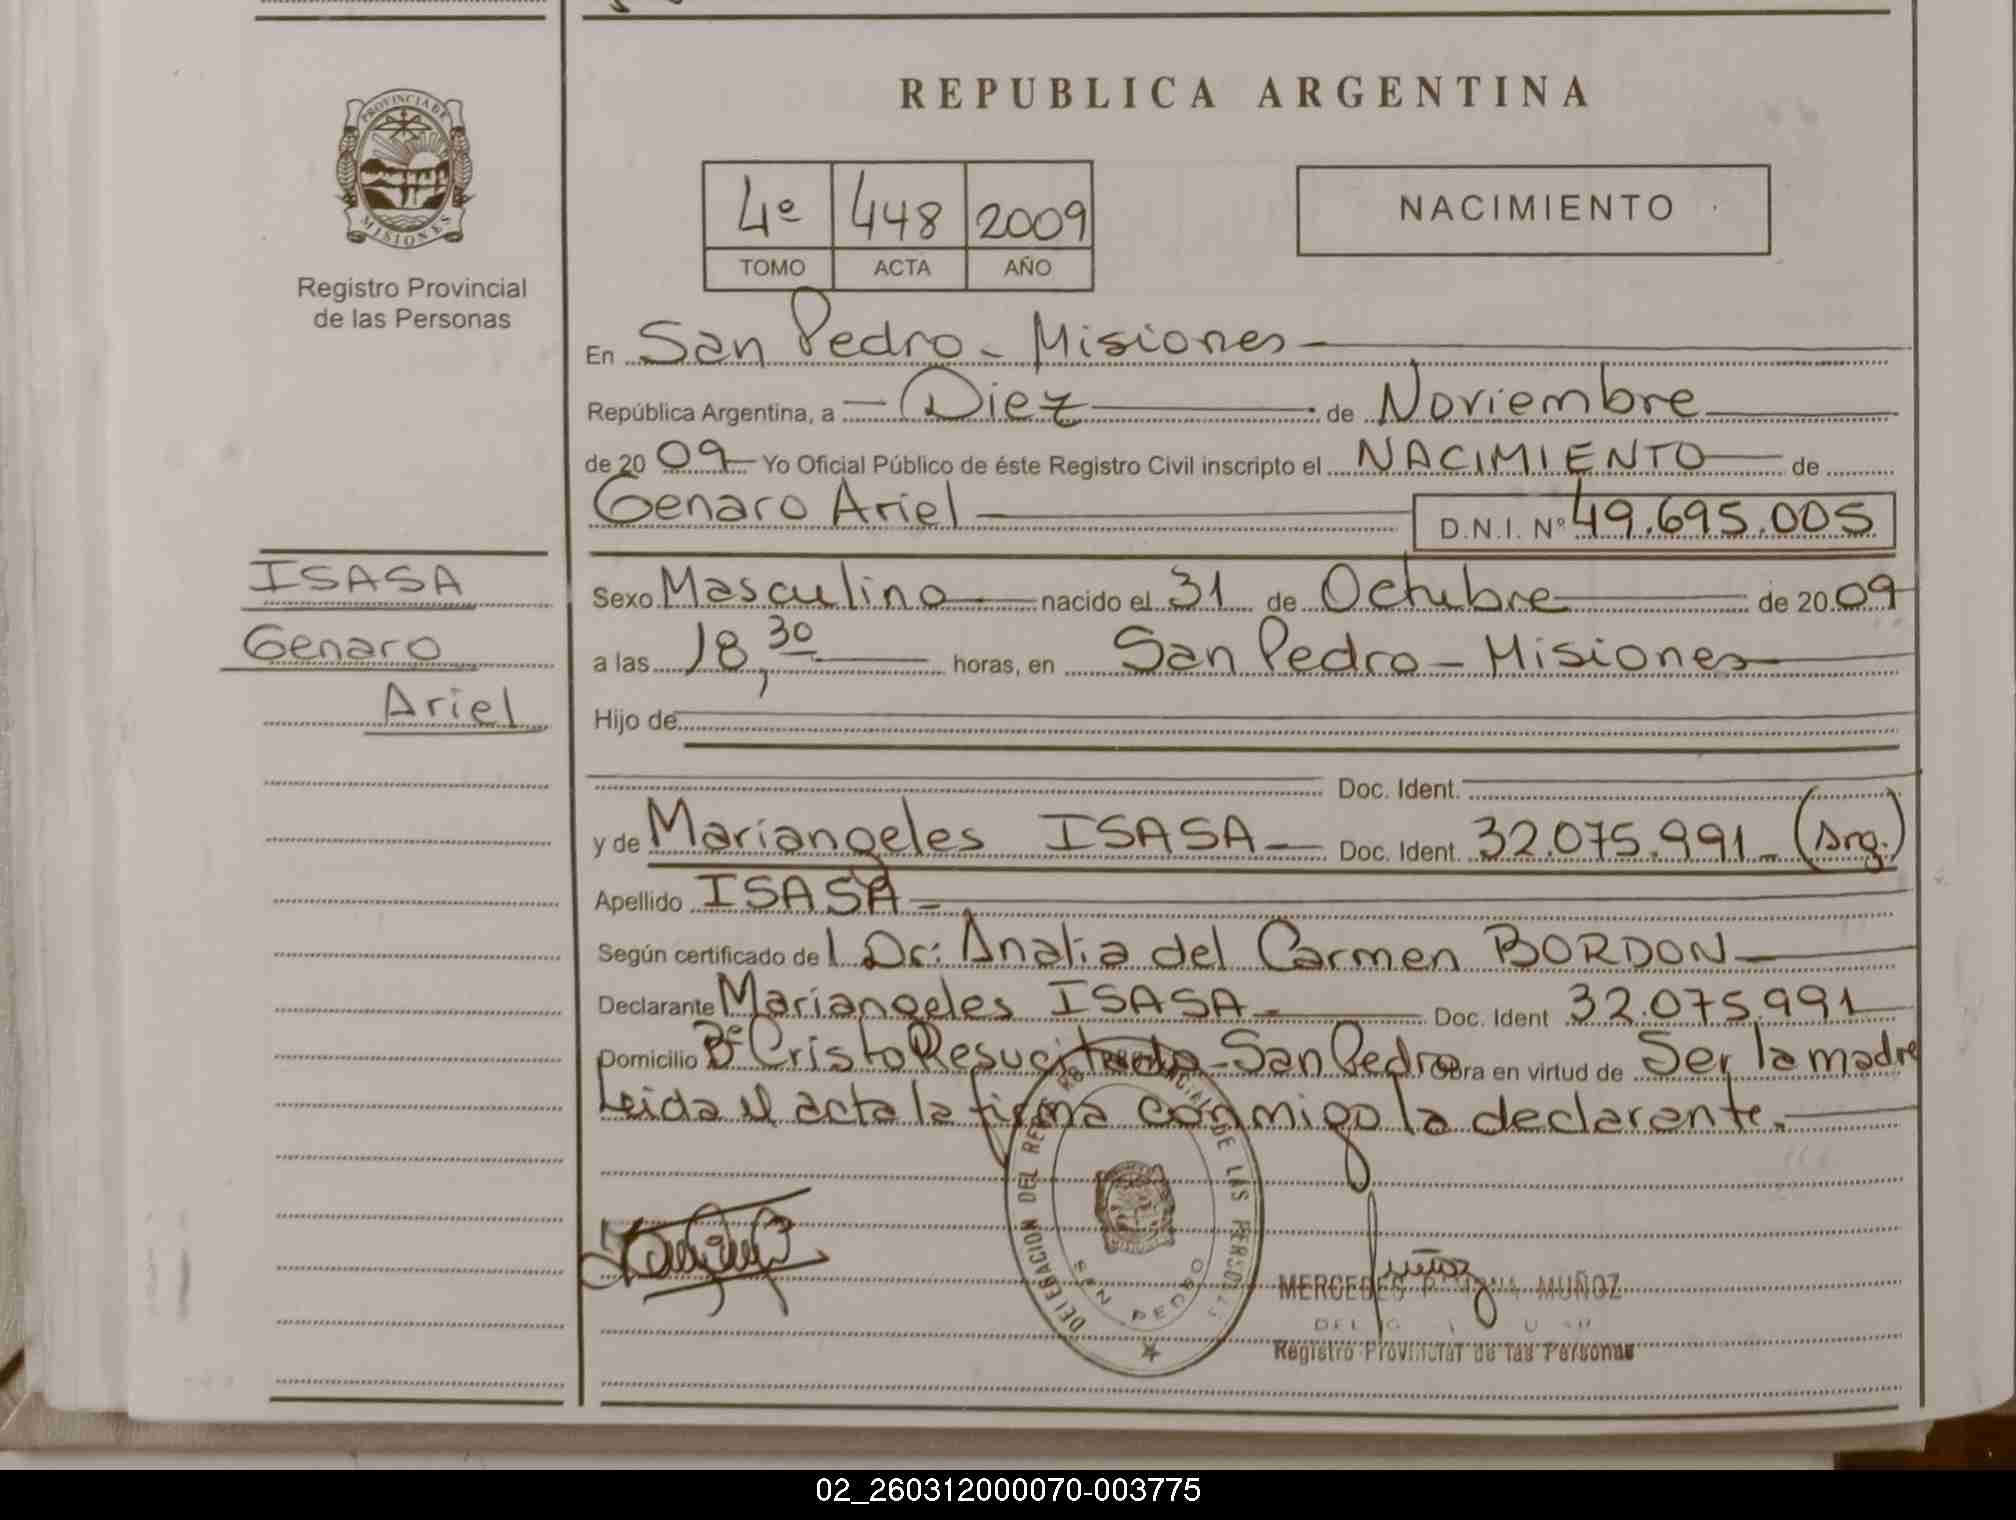 REPUBLICA ARGENTINA
PROVINCIA DE
MISIONES
Registro Provincial
de las Personas
4º 448 2009
TOMO ACTA AÑO
NACIMIENTO
En San Pedro - Misiones
República Argentina, a Diez de Noviembre
de 20 09 Yo Oficial Público de éste Registro Civil inscripto el NACIMIENTO de
Genaro Ariel D.N.I. Nº 49.695.005
ISASA
Genaro
Ariel
Sexo Masculino nacido el 31 de Octubre de 20 09
a las 18,30 horas, en San Pedro - Misiones
Hijo de
Doc. Ident.
y de Mariangeles ISASA Doc. Ident. 32.075.991 (Arg.)
Apellido ISASA
Según certificado de l Dr: Analia del Carmen BORDON
Declarante Mariangeles ISASA Doc. Ident 32.075.991
Domicilio Bº Cristo Resucitado - San Pedro Obra en virtud de Ser la madre
Leida el acta la firma conmigo la declarante.
DELEGACION DEL REGISTRO PROVINCIAL DE LAS PERSONAS
SAN PEDRO
Muñoz
MERCEDES RAMONA MUÑOZ
Registro Provincial de las Personas
02_260312000070-003775